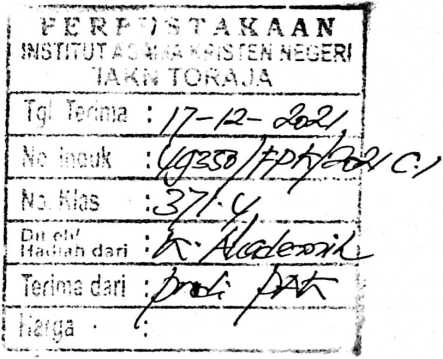 PERPUSTAKAAN
INSTITUT AGAMA KRISTEN NEGERI
IAKN TORAJA
Tgl. Terima : 17-12-2021
No. Induk : /2021 C.1
No. Klas : 371.4
Hadiah dari : K. Akademik
Terima dari : prodi PAK
Harga :